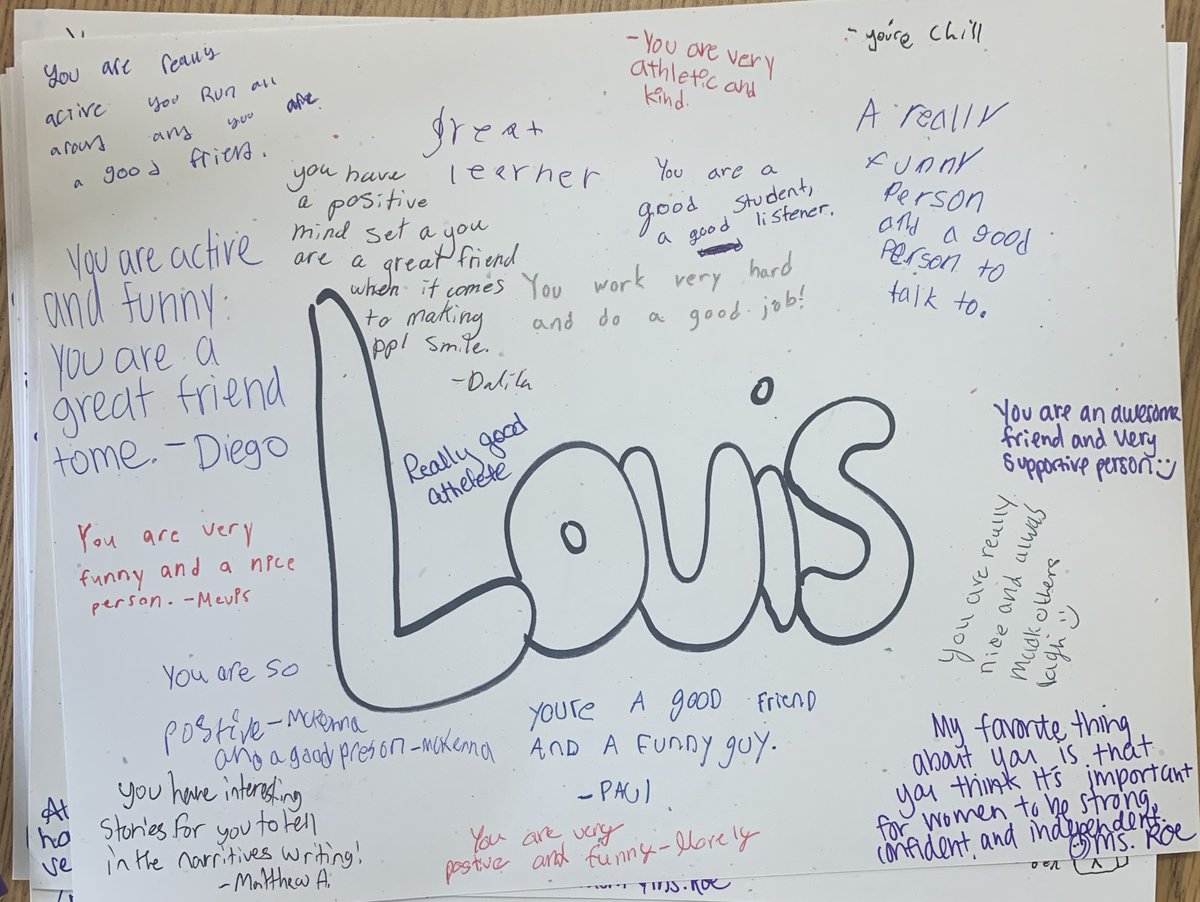 You are really
active you Run all
a good friend.
-You are very
athletic and
kind.
- you're chill
great
learner
you have
a positive
mind set a you
are a great friend
when it comes
to making
ppl smile.
-Dalila
You are a
good student,
a good listener.
A really
funny
Person
and a good
Person to
talk to.
You are active
and funny.
you are a
great friend
tome. - Diego
You work very hard
and do a good job!
Really good
athelete
Louis
You are an awesome
friend and very
supportive person
You are very
funny and a nice
person. -
You are really
nice and
others
You are so
postive - McKenna
and a good preson - McKenna
You're A good Friend
AND A FUNNY GUY.
- PAUL
My favorite thing
about you is that
you think it's important
for women to be strong,
confident, and independent.
Ms. Roe
you have interesting
Stories for you to tell
in the narritives writing!
- Matthew A.
You are very
postive and funny -
Ms. Roe